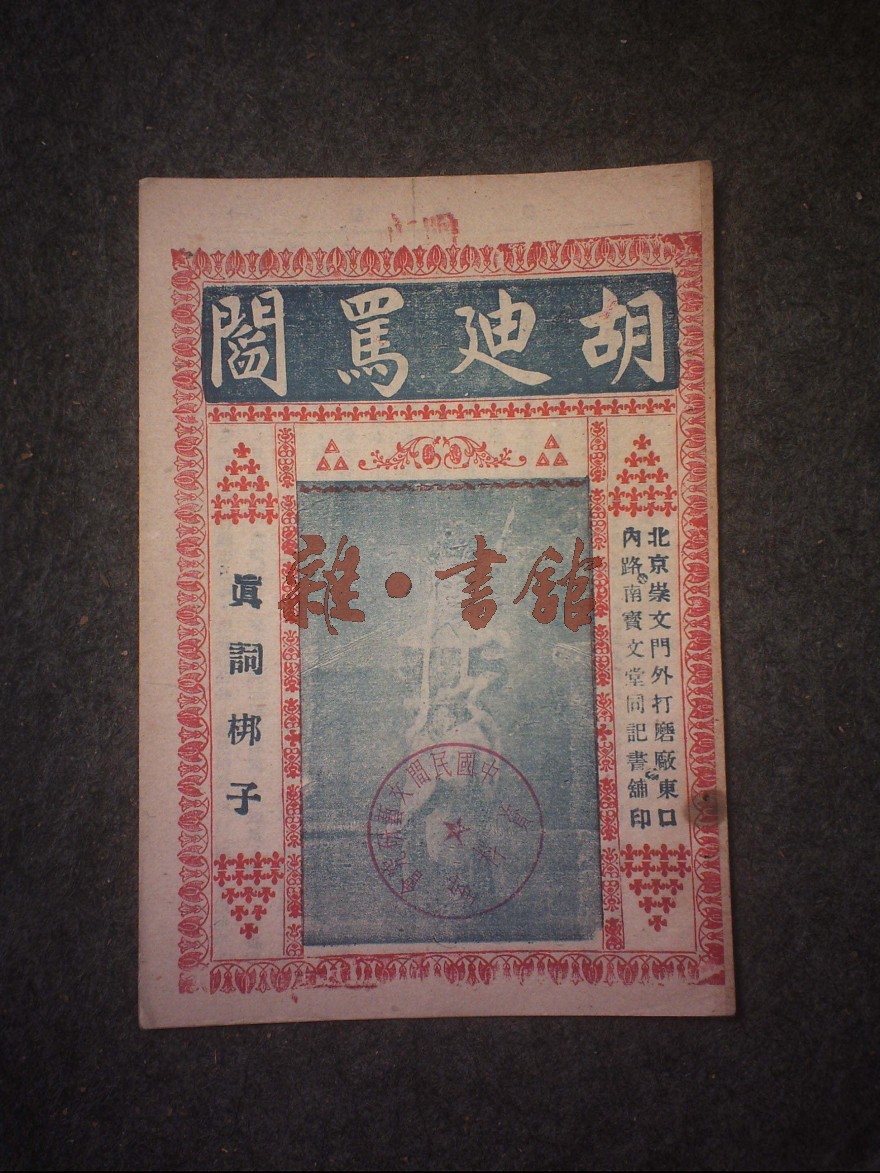 胡迪罵閻
北京崇文門外打磨廠東口
內路南寶文堂同記書舖印
真詞梆子
雜·書館
中國民間文藝研究會
資料室